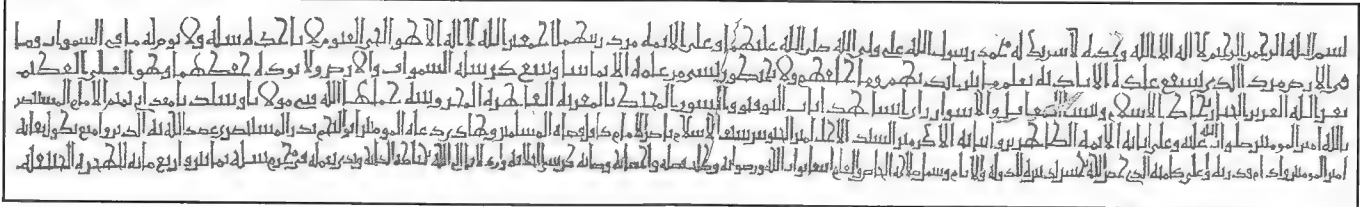 بسم الله الرحمن الرحيم لا اله الا الله وحده لا شريك له محمد رسول الله علي ولي الله صلى الله عليهما وعلى الائمة من ذريتهما اجمعين الله لا اله الا هو الحي القيوم لا تاخذه سنة ولا نوم له ما في السموات وما
في الارض من ذا الذي يشفع عنده الا باذنه يعلم ما بين ايديهم وما خلفهم ولا يحيطون بشي من علمه الا بما شا وسع كرسيه السموات والارض ولا يوده حفظهما وهو العلي العظيم
بعز الله العزيز الجبار يحاط الاسلام وتنشا المعاقل والاسوار انشا هذا باب التوفيق والسور المحيط بالمعزية القاهرة المحروسة حماها الله فتى مولانا وسيدنا معد ابي تميم الامام المستنصر
بالله امير المومنين صلوات الله عليه وعلى ابائه الائمة الطاهرين وابنائه الاكرمين السيد الاجل امير الجيوش سيف الاسلام ناصر الامام كافل قضاة المسلمين وهادي دعاة المومنين ابو النجم بدر المستنصري عضد الله به الدين وامتع بطول بقائه
امير المومنين وادام قدرته واعلى كلمته الذي حصن الله بحسن تدبيره الدولة والانام وشمل صلاحه الخاص والعام ابتغا ثواب الله ورضوانه وطلب فضله واحسانه وصيانة كرسي الخلافة وازدلافا الى الله بحياطة الكافة وبدي بعمله في محرم سنة ثمانين واربع مائة للهجرة الحنيفية